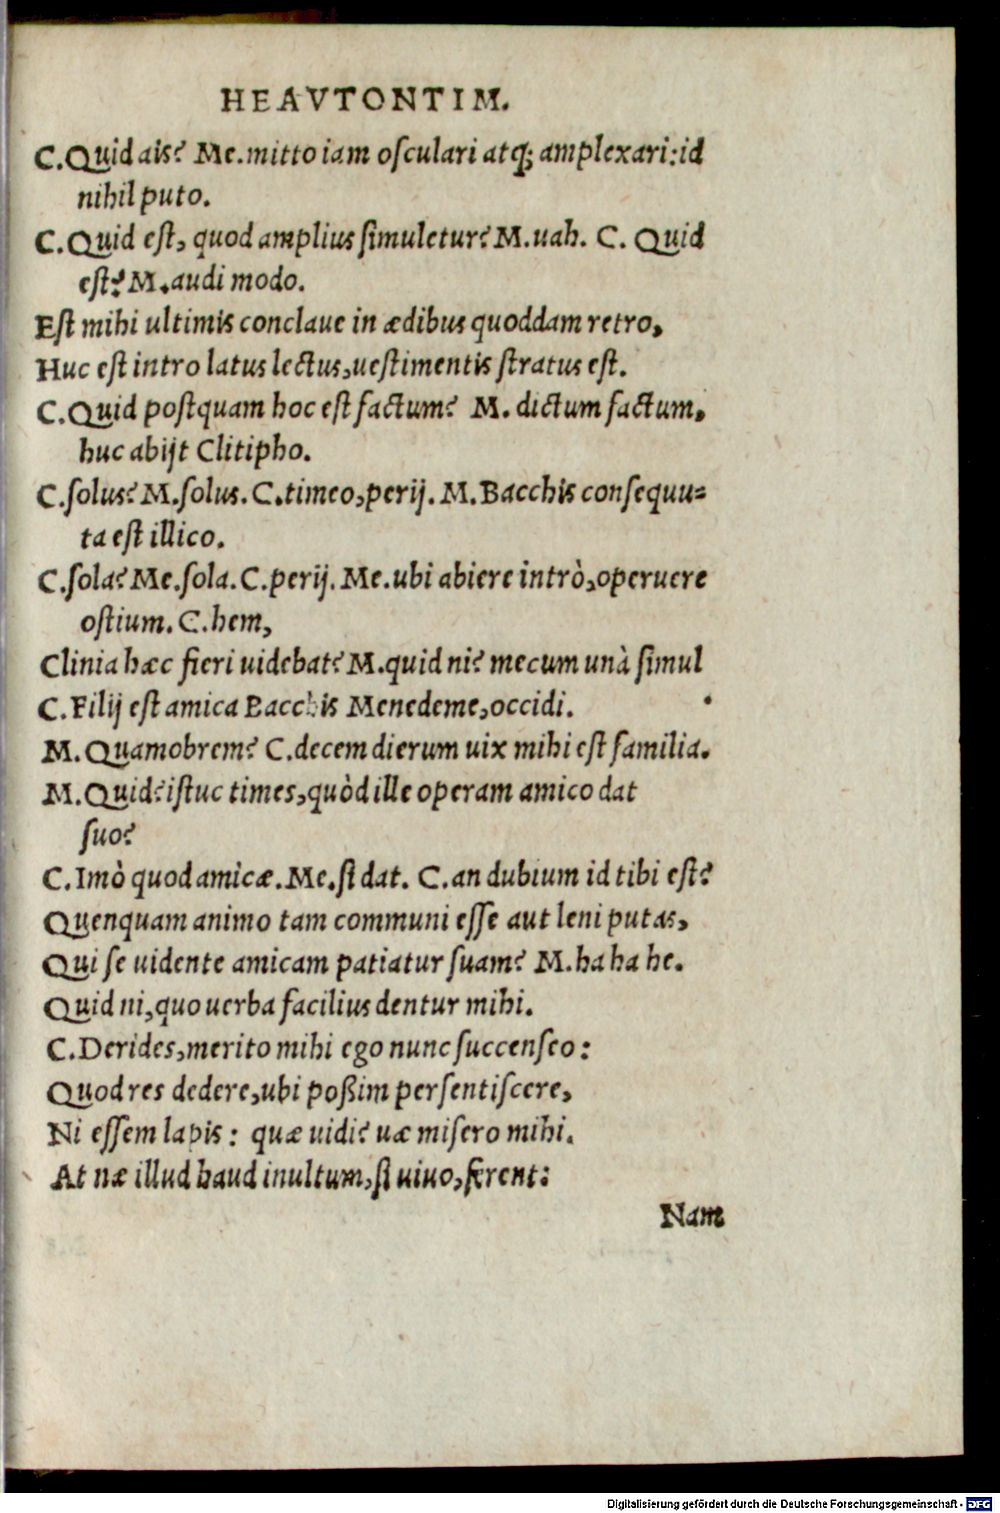 HEAVTONTIM.
C.Quid ais? Me.mitto iam osculari atq; amplexari:id
nihil puto.
C.Quid est, quod amplius simuletur? M.uah. C. Quid
est? M.audi modo.
Est mihi ultimis conclaue in ædibus quoddam retro,
Huc est intro latus lectus,uestimentis stratus est.
C.Quid postquam hoc est factum? M. dictum factum,
huc abijt Clitipho.
C.solus? M.solus. C.timeo,perij. M.Bacchis consequu-
ta est illico.
C.sola? Me.sola. C.perij. Me.ubi abiere intrò,operuere
ostium. C.hem,
Clinia hæc fieri uidebat? M.quid ni? mecum unà simul
C.Filij est amica Bacchis Menedeme,occidi.
M.Quamobrem? C.decem dierum uix mihi est familia.
M.Quid?istuc times,quòd ille operam amico dat
suo?
C.Imò quod amicæ.Me.si dat. C.an dubium id tibi est?
Quenquam animo tam communi esse aut leni putas,
Qui se uidente amicam patiatur suam? M.ha ha he.
Quid ni,quo uerba facilius dentur mihi.
C.Derides,merito mihi ego nunc succenseo:
Quod res dedere,ubi poßim persentiscere,
Ni essem lapis: quæ uidi? uæ misero mihi.
At næ illud haud inultum,si uiuo,ferent:
Nam
Digitalisierung gefördert durch die Deutsche Forschungsgemeinschaft - DFG